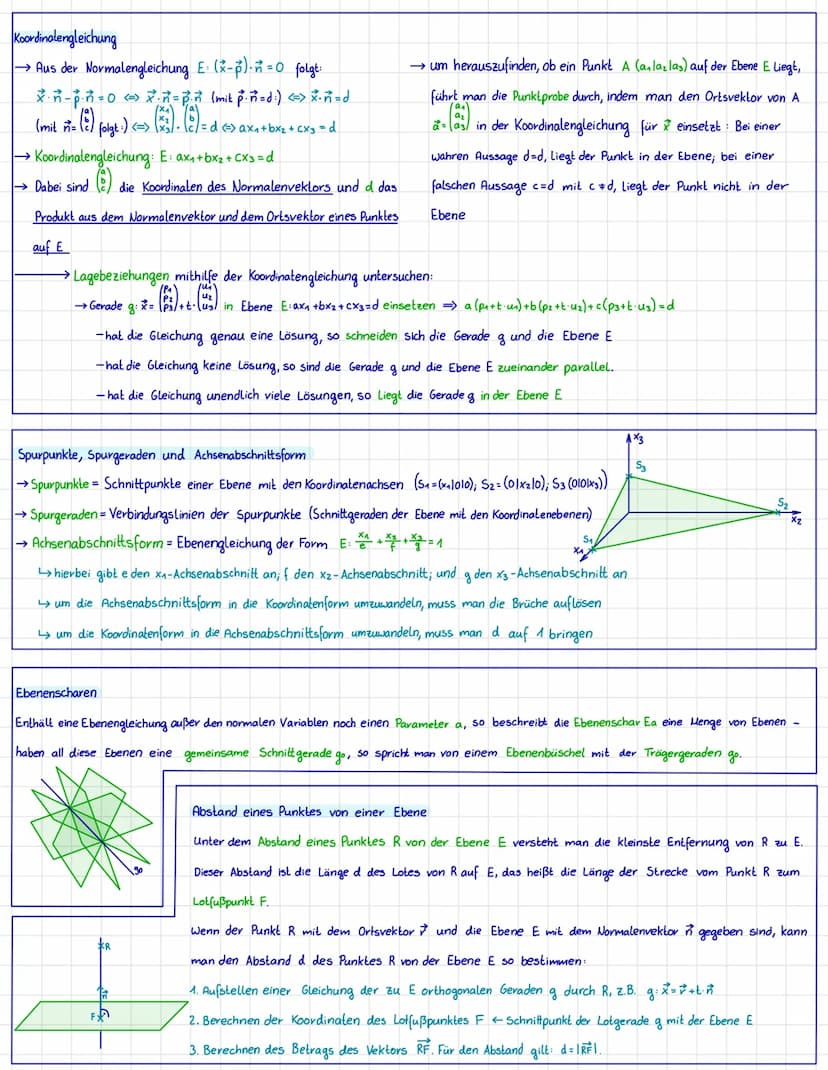 Koordinatengleichung
→ Aus der Normalengleichung E: (x⃗-p⃗)·n⃗=0 folgt:
x⃗·n⃗-p⃗·n⃗=0 ⇔ x⃗·n⃗=p⃗·n⃗ (mit p⃗·n⃗=d:) ⇔ x⃗·n⃗=d
(mit n⃗=(a b c) folgt:) ⇔ (x₁ x₂ x₃)·(a b c)=d ⇔ ax₁+bx₂+cx₃=d
→ Koordinatengleichung: E: ax₁+bx₂+cx₃=d
→ Dabei sind (a b c) die Koordinaten des Normalenvektors und d das
Produkt aus dem Normalenvektor und dem Ortsvektor eines Punktes
auf E
→ um herauszufinden, ob ein Punkt A (a₁|a₂|a₃) auf der Ebene E liegt,
führt man die Punktprobe durch, indem man den Ortsvektor von A
a⃗=(a₁ a₂ a₃) in der Koordinatengleichung für x⃗ einsetzt: Bei einer
wahren Aussage d=d, liegt der Punkt in der Ebene; bei einer
falschen Aussage c=d mit c≠d, liegt der Punkt nicht in der
Ebene
→ Lagebeziehungen mithilfe der Koordinatengleichung untersuchen:
→ Gerade g: x⃗=(p₁ p₂ p₃)+t·(u₁ u₂ u₃) in Ebene E: ax₁+bx₂+cx₃=d einsetzen ⇒ a(p₁+t·u₁)+b(p₂+t·u₂)+c(p₃+t·u₃)=d
-hat die Gleichung genau eine Lösung, so schneiden sich die Gerade g und die Ebene E
-hat die Gleichung keine Lösung, so sind die Gerade g und die Ebene E zueinander parallel.
-hat die Gleichung unendlich viele Lösungen, so liegt die Gerade g in der Ebene E
Spurpunkte, Spurgeraden und Achsenabschnittsform
→ Spurpunkte = Schnittpunkte einer Ebene mit den Koordinatenachsen (S₁=(x₁|0|0); S₂=(0|x₂|0); S₃(0|0|x₃))
→ Spurgeraden = Verbindungslinien der Spurpunkte (Schnittgeraden der Ebene mit den Koordinatenebenen)
→ Achsenabschnittsform = Ebenengleichung der Form E: x₁/e + x₂/f + x₃/g = 1
↳ hierbei gibt e den x₁-Achsenabschnitt an; f den x₂-Achsenabschnitt; und g den x₃-Achsenabschnitt an
↳ um die Achsenabschnittsform in die Koordinatenform umzuwandeln, muss man die Brüche auflösen
↳ um die Koordinatenform in die Achsenabschnittsform umzuwandeln, muss man d auf 1 bringen
x₃
S₃
S₂
x₂
S₁
x₁
Ebenenscharen
Enthält eine Ebenengleichung außer den normalen Variablen noch einen Parameter a, so beschreibt die Ebenenschar Ea eine Menge von Ebenen -
haben all diese Ebenen eine gemeinsame Schnittgerade g₀, so spricht man von einem Ebenenbüschel mit der Trägergeraden g₀.
g₀
Abstand eines Punktes von einer Ebene
Unter dem Abstand eines Punktes R von der Ebene E versteht man die kleinste Entfernung von R zu E.
Dieser Abstand ist die Länge d des Lotes von R auf E, das heißt die Länge der Strecke vom Punkt R zum
Lotfußpunkt F.
Wenn der Punkt R mit dem Ortsvektor r⃗ und die Ebene E mit dem Normalenvektor n⃗ gegeben sind, kann
man den Abstand d des Punktes R von der Ebene E so bestimmen:
1. Aufstellen einer Gleichung der zu E orthogonalen Geraden g durch R, z.B. g: x⃗=r⃗+t·n⃗
2. Berechnen der Koordinaten des Lotfußpunktes F ← Schnittpunkt der Lotgerade g mit der Ebene E
3. Berechnen des Betrags des Vektors RF⃗. Für den Abstand gilt: d=|RF⃗|.
R
n⃗
F